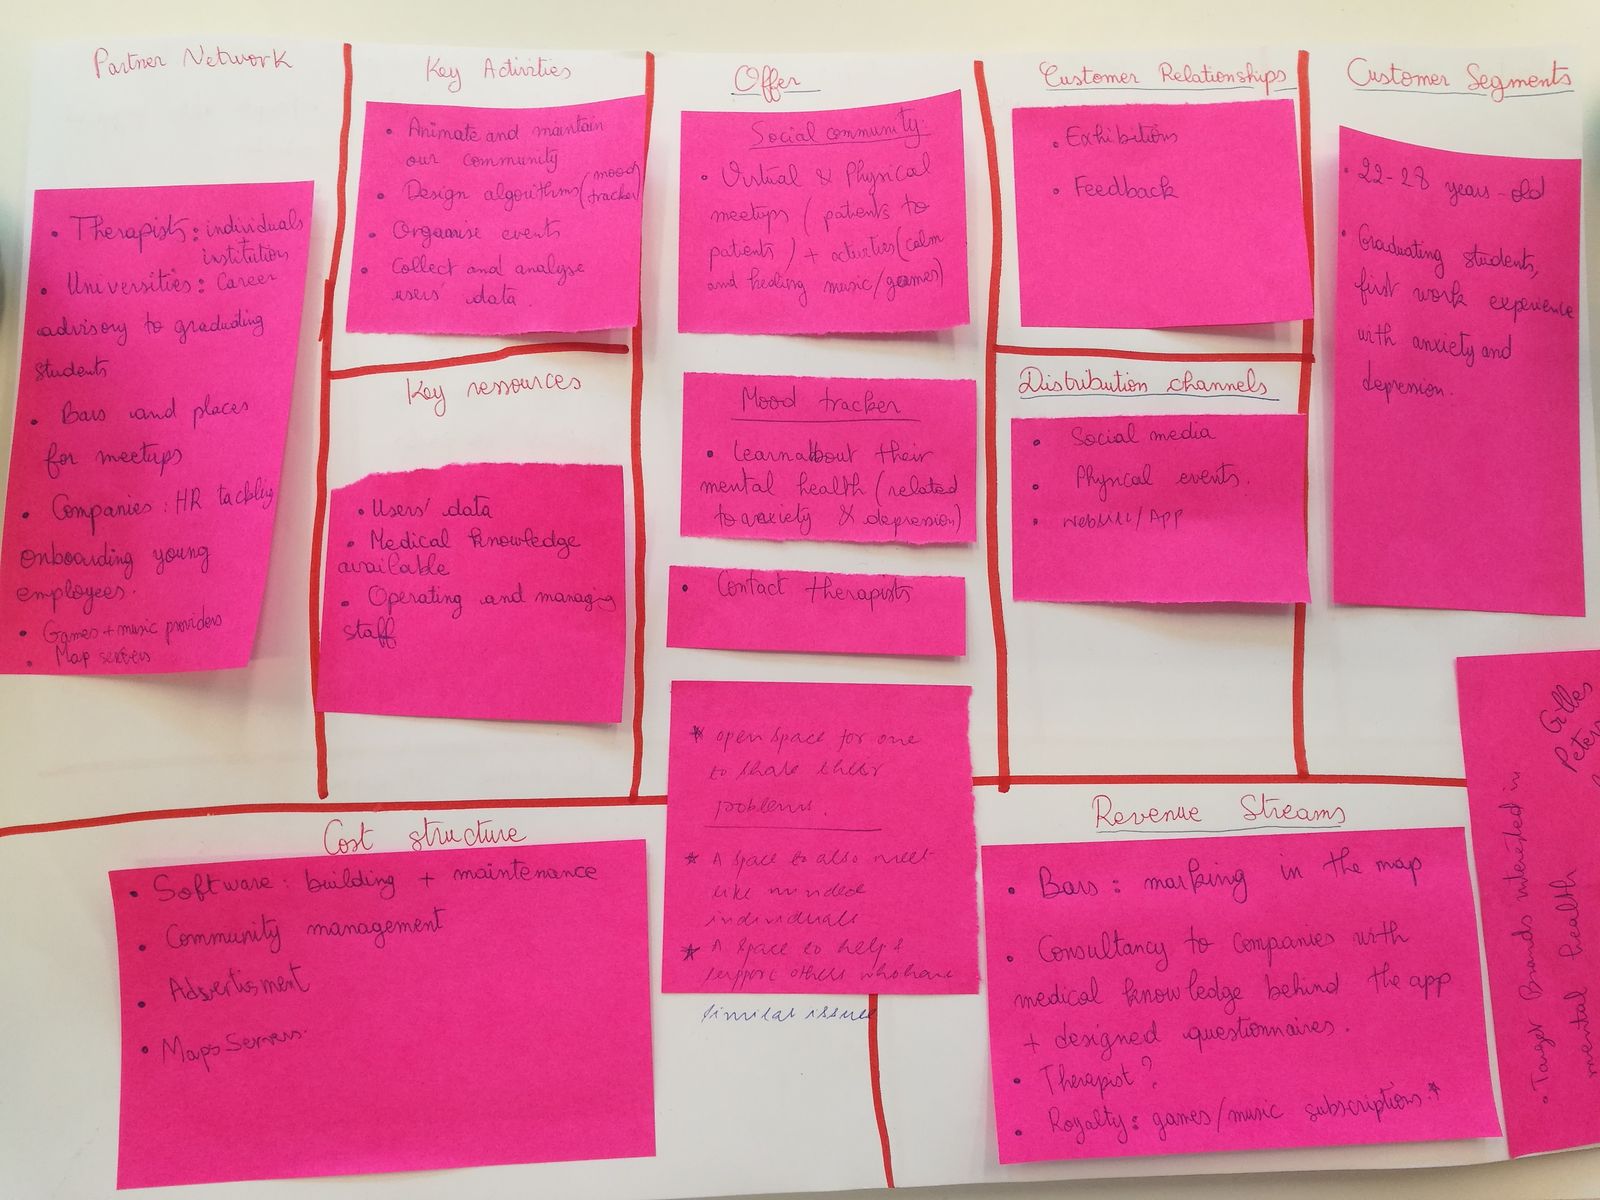 Partner Network
• Therapists: individuals
institution
• Universities: Career
advisory to graduating
students
• Bars and places
for meetups
• Companies: HR tackling
onboarding young
employees.
• Games + music providers
• Map servers
Key Activities
• Animate and maintain
our community
• Design algorithms (mood
tracker)
• Organise events
• Collect and analyse
users' data.
Key ressources
• Users' data
• Medical knowledge
available
• Operating and managing
staff
Offer
Social community:
• Virtual & Physical
meetups (patients to
patients) + activities (calm
and healing music/games)
Mood tracker
• Learn about their
mental health (related
to anxiety & depression)
• Contact therapists
* open space for one
to share their
problems.
* A space to also meet
like minded
individuals
* A space to help &
support others who have
similar issues
Customer Relationships
• Exhibitions
• Feedback
Distribution channels
• Social media
• Physical events.
• website/App
Customer Segments
• 22-28 years-old
• Graduating students,
first work experience
with anxiety and
depression.
Cost structure
• Software: building + maintenance
• Community management
• Advertisment
• Maps Servers.
Revenue Streams
• Bars: marking in the map
• Consultancy to companies with
medical knowledge behind the app
+ designed questionnaires.
• Therapist?
• Royalty: games/music subscriptions.*
• Target Brands interested in
mental health
Gilles